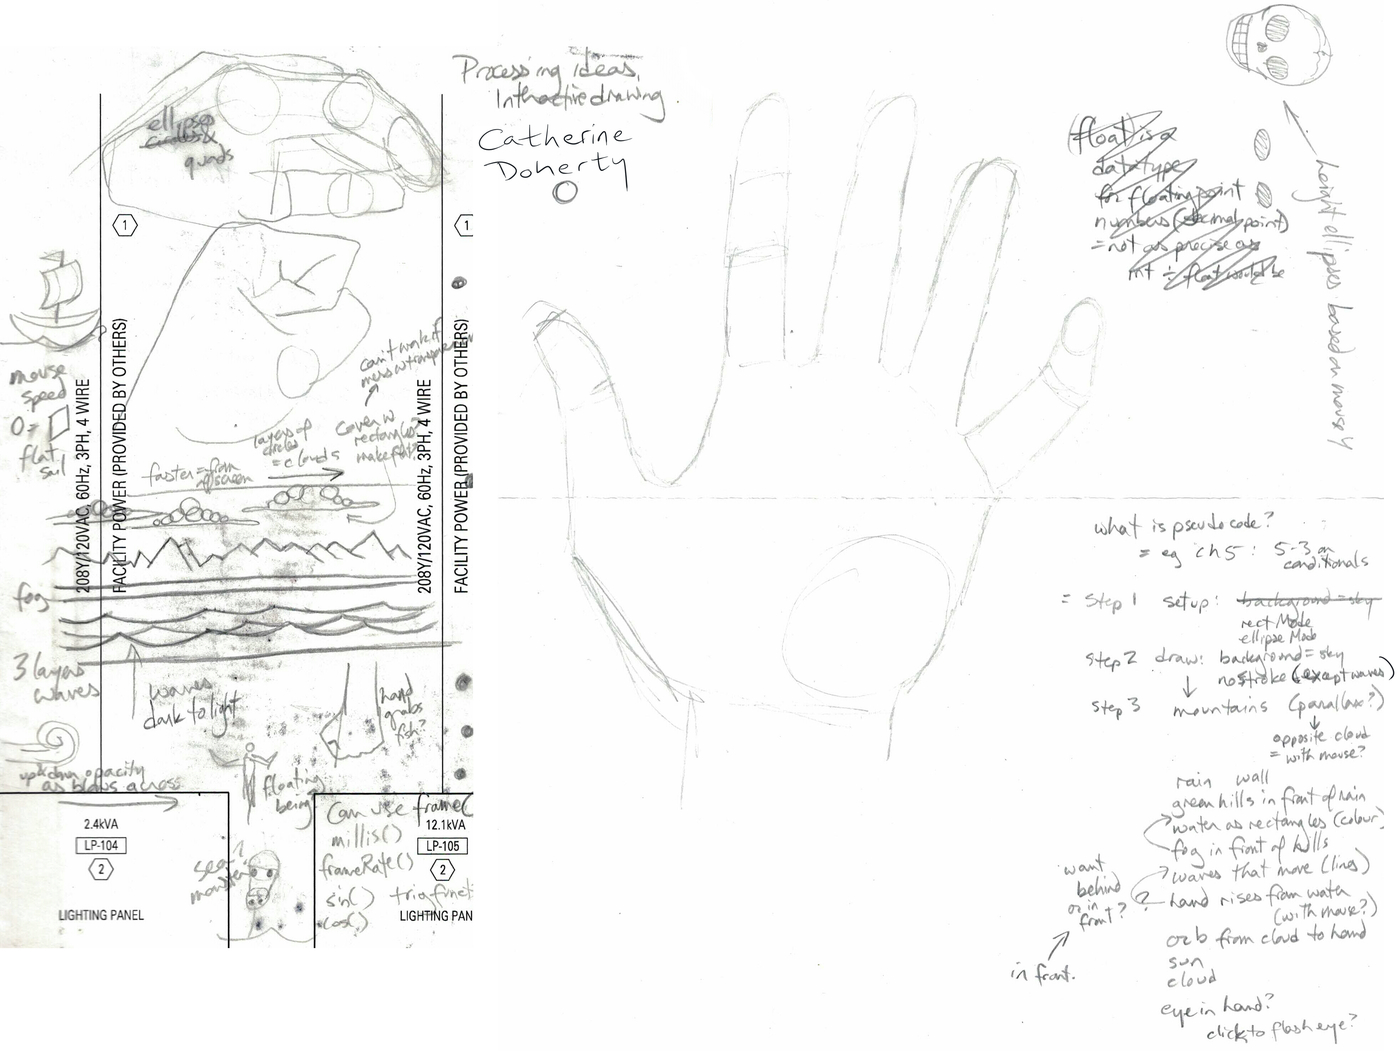 Processing ideas,
Interactive drawing
Catherine
Doherty
ellipses
circles &
quads
1
1
mouse
speed
0 =
flat
sail
208Y/120VAC, 60Hz, 3PH, 4 WIRE
FACILITY POWER (PROVIDED BY OTHERS)
208Y/120VAC, 60Hz, 3PH, 4 WIRE
FACILITY POWER (PROVIDED BY OTHERS)
can't work if
layers of
circles
= clouds
cover w
rectangle?
make flat?
faster = from
offscreen
fog
3 layers
waves
waves
dark to light
hand
grabs
fish?
up & down opacity
as blows across
floating
being?
sea?
monster
Can use frame(
millis()
frameRate()
sin()
cos()
trig funct
2.4kVA
LP-104
2
LIGHTING PANEL
12.1kVA
LP-105
2
LIGHTING PAN
(float) is a
data type
for floating point
numbers (decimal point)
= not as precise as
int ÷ float would be
height ellipses based on mouse Y
what is pseudocode?
= eg ch 5: 5-3 on
conditionals
= Step 1 setup: background = sky
rect Mode
ellipse Mode
Step 2 draw: background = sky
no stroke (except waves)
Step 3 mountains (parallax?)
opposite cloud
= with mouse?
rain wall
green hills in front of rain
water as rectangles (colour)
fog in front of hills
waves that move (lines)
? hand rises from water
(with mouse?)
want
behind
or in
front?
in front.
orb from cloud to hand
sun
cloud
eye in hand?
click to flash eye?